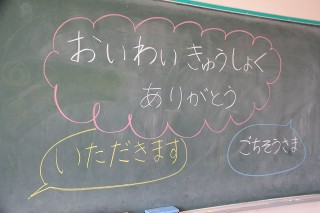 おいわいきゅうしょく
ありがとう
いただきます
ごちそうさま